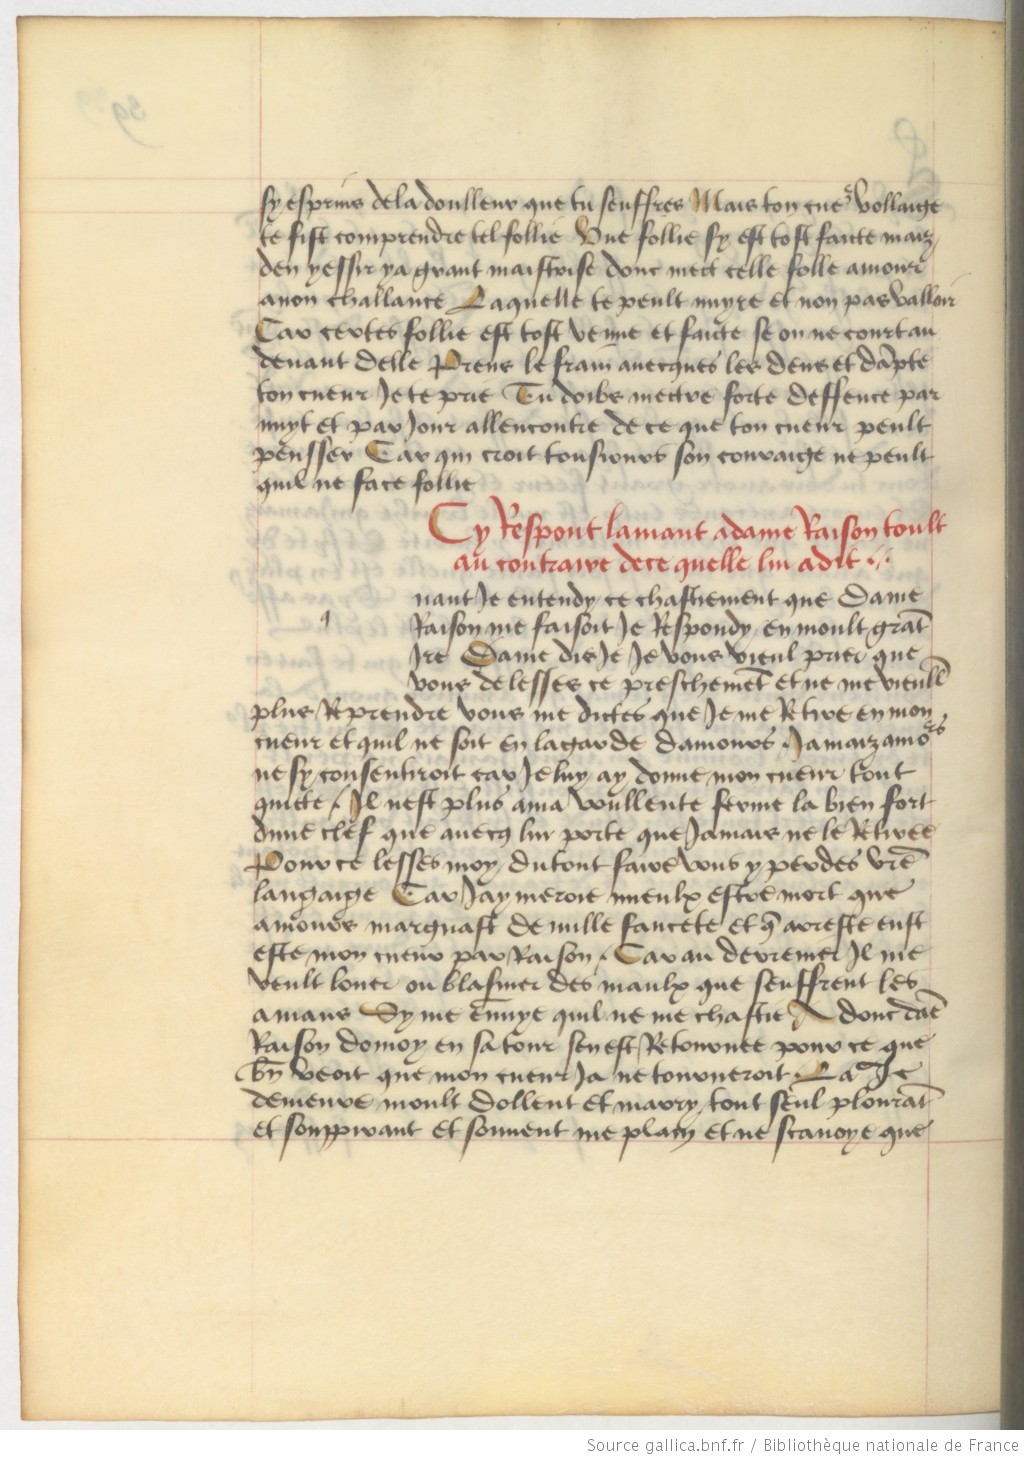 sy esprins de la doulleur que tu seuffres Mais ton cueᷣ vollaige
te fist comprendre tel follie Vne follie sy est tost faicte maiz
den yessir ya grant maistrise donc mect celle folle amour
a non challance Laquelle te peult nuyre et non pas valloir
Car certes follie est tost venue et faicte se on ne court au
deuant delle Prens le frain auecques les dens et dāpte
ton cueur Je te prie Tu doibs mectre forte deffence par
nuyt et par Jour allencontre de ce que ton cueur peult
pensser Car qui croit tousiours son couraige ne peult
quil ne face follie
Cy Respont lamant a dame Raison toult
au contraire de ce quelle lui a dit
q
uant Je entendy ce chastiement que Dame
Raison me faisoit Je Respondy en moult grāt
Ire Dame dis Je Je vous vieul prier que
vous delesses ce preschemēt et ne me vieull̄
plus Reprendre vous me dictes que Je me Retire en mon
cueur et quil ne soit en la garde damours Jamaiz amoͬs
ne sy consentiroit car Je luy ay donne mon cueur tout
quicte Il nest plus a ma voullente ferme la bien fort
dune clef que auecq lui porte que Jamais ne le Retiree
Pour ce lesses moy du tout faire vous y perdes vr̄e
langaige Car Jaymeroie mieulx estre mort que
amours marquast de nulle faucete et q̄ arreste eust
este mon cueur par Raison Car au derrenier Il me
veult louer ou blasmer des maulx que seuffrent les
amans Sy me ennuye quil ne me chastie A donc dāe
Raison de moy en sa tour sen est Retournee pour ce que
bn̄ veoit que mon cueur Ja ne tourneroit La Je
demeure moult dollent et marry tout seul plourāt
et souppirant et souuent me plain et ne scauoye que
Source gallica.bnf.fr / Bibliothèque nationale de France